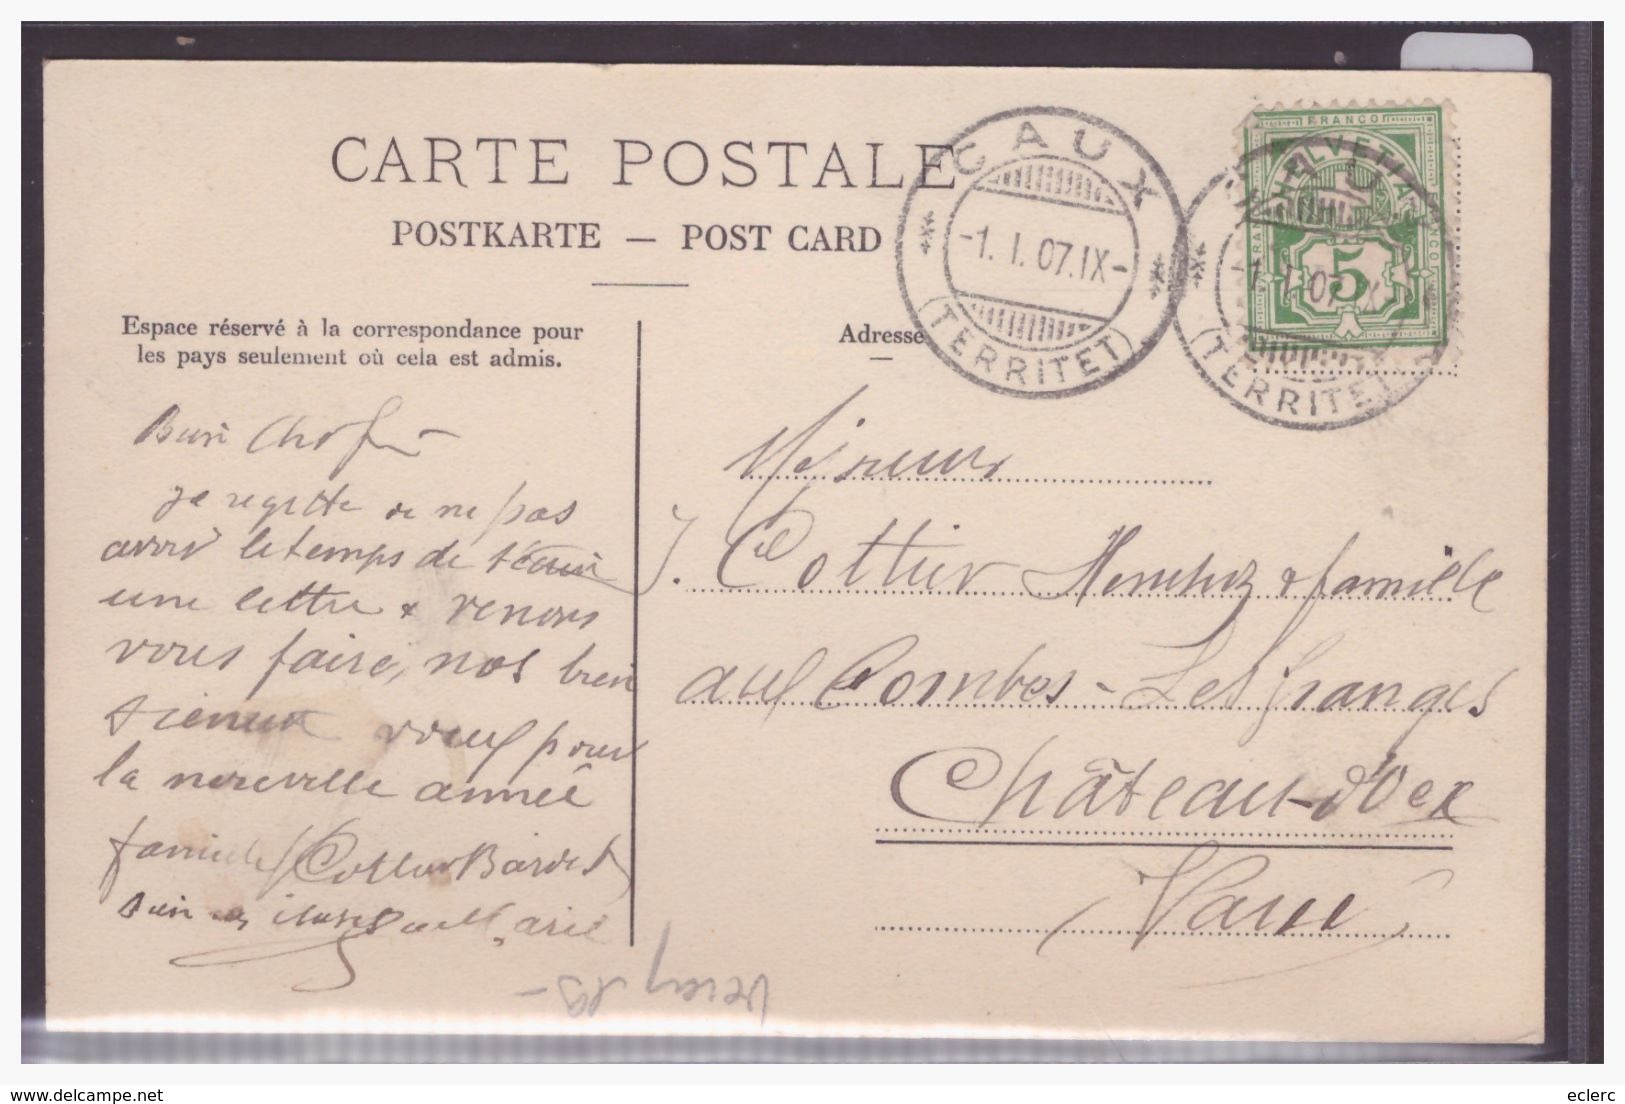 CARTE POSTALE
POSTKARTE — POST CARD
Espace réservé à la correspondance pour
les pays seulement où cela est admis.
Adresse
CAUX
-1. I. 07. IX-
(TERRITET)
FRANCO
HELVETIA
FRANCO
FRANCO
5
-1. I. 07. IX-
(TERRITET)
je regrette de ne pas
avoir le temps de
une lettre & venons
vous faire, nos bien
voeux pour
la nouvelle année
famille Cottier Bardet
Monsieur
J. Cottier Henchoz & famille
aux Combes - Les Granges
Château-d'Oex
Vaud
Vevey
delcampe.net
eclerc